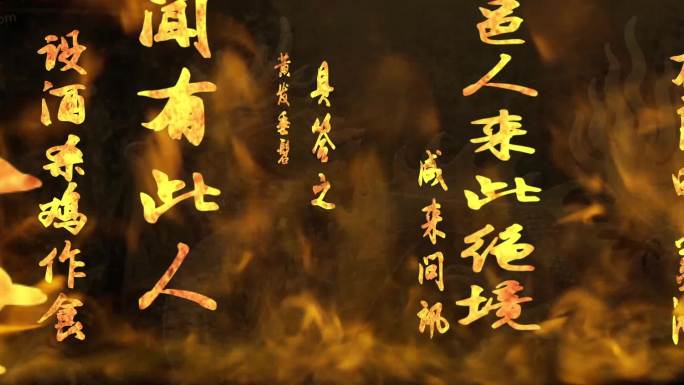 邑人来此绝境
咸来问讯
具答之
黄发垂髫
闻有此人
设酒杀鸡作食